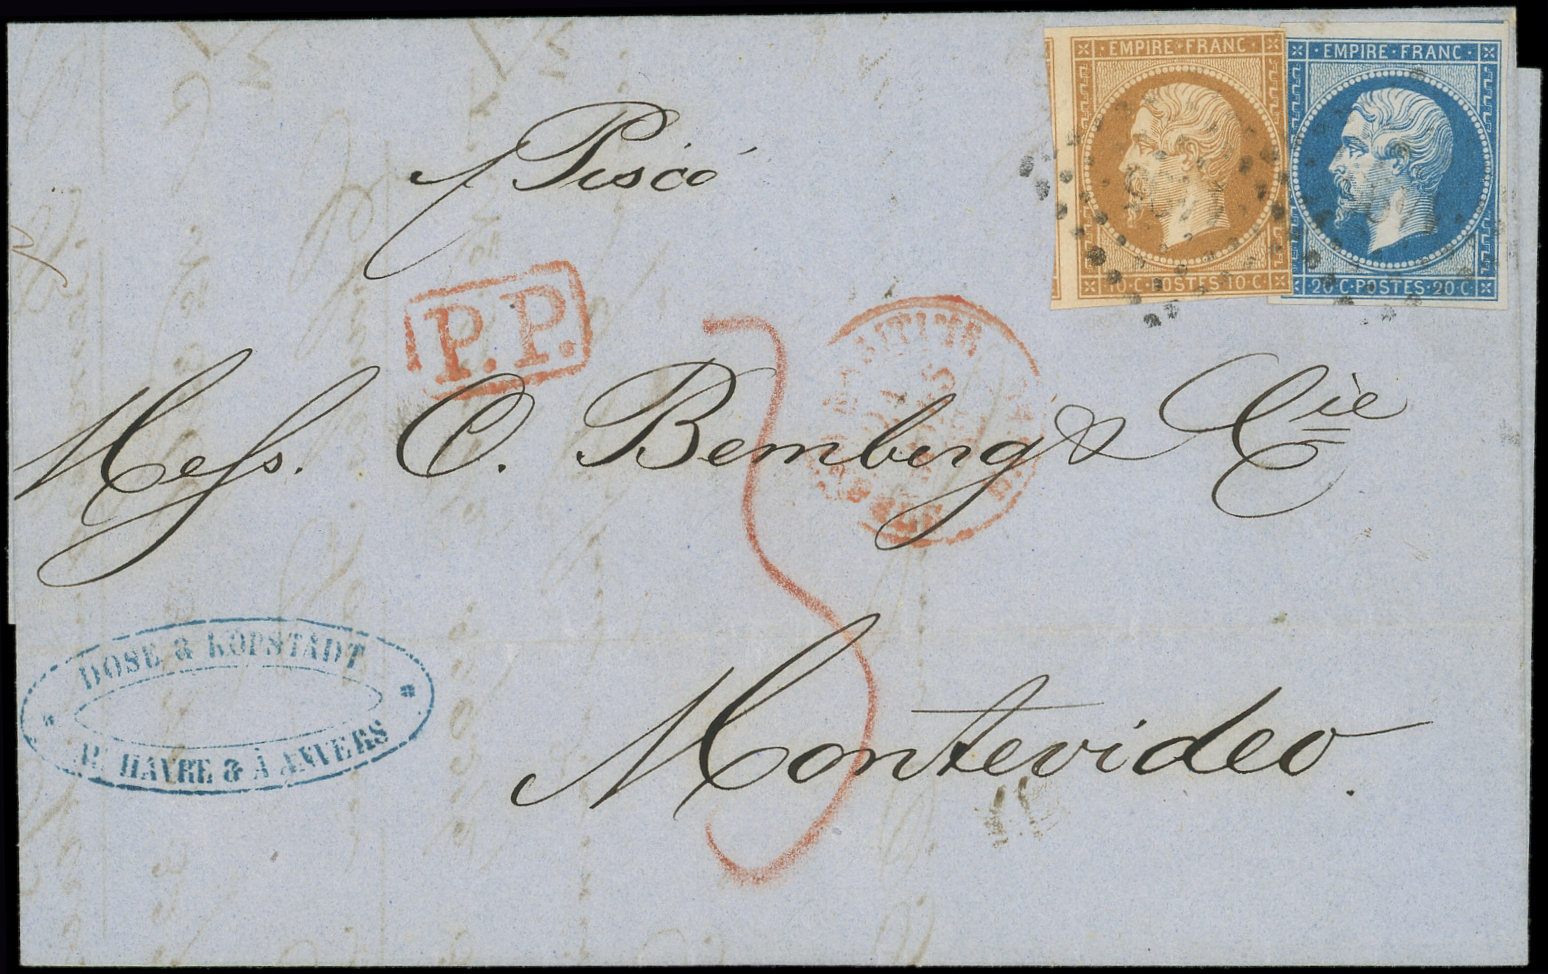 EMPIRE FRANC
10·C·POSTES·10·C
EMPIRE·FRANC
20·C·POSTES·20·C
P.P.
Mess. O. Bemberg & Cie
Montevideo.
DOSE & KOPSTADT
HAVRE & À ANVERS
3